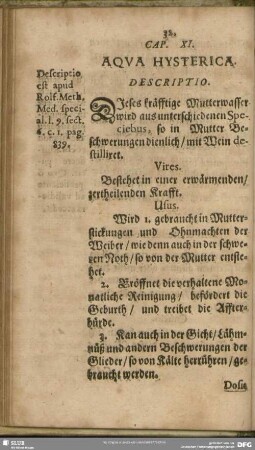 32.
CAP. XI.
AQVA HYSTERICA.
DESCRIPTIO.
Descriptio
est apud
Rolf. Meth.
Med. speci-
al. l. 9. sect.
6. c. 1. pag.
839.
DIeses kräfftige Mutterwasser
wird aus unterschiedenen Spe-
ciebus, so in Mutter Be-
schwerungen dienlich / mit Wein de-
stilliret.
Vires.
Bestehet in einer erwärmenden /
zertheilenden Krafft.
Usus.
Wird 1. gebraucht in Mutter-
stickungen und Ohnmachten der
Weiber / wie denn auch in der schwe-
ren Noth / so von der Mutter entste-
het.
2. Eröffnet die verhaltene Mo-
natliche Reinigung / befördert die
Geburth / und treibet die Affter-
bürde.
3. Kan auch in der Gicht / Lähm-
nüß und andern Beschwerungen der
Glieder / so von Kälte herrühren / ge-
braucht werden.
Dosis